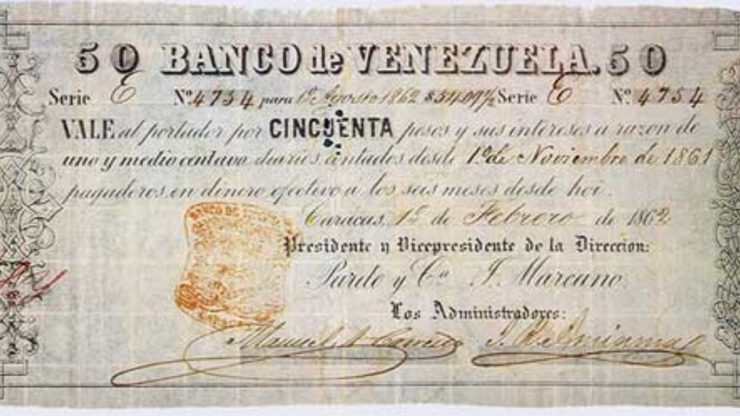 50 BANCO de VENEZUELA. 50
Serie E Nº 4754 para 1º Agosto 1862 $ 54.09½ Serie E Nº 4754
VALE al portador por CINCUENTA pesos y sus intereses a razon de
uno y medio centavo diarios contados desde 1º de Noviembre de 1861
pagaderos en dinero efectivo a los seis meses desde hoi.
Caracas, 1º de Febrero de 1862
Presidente y Vicepresidente de la Direccion:
Pardo y Cª J. Marcano.
Los Administradores:
Manuel A
BANCO DE